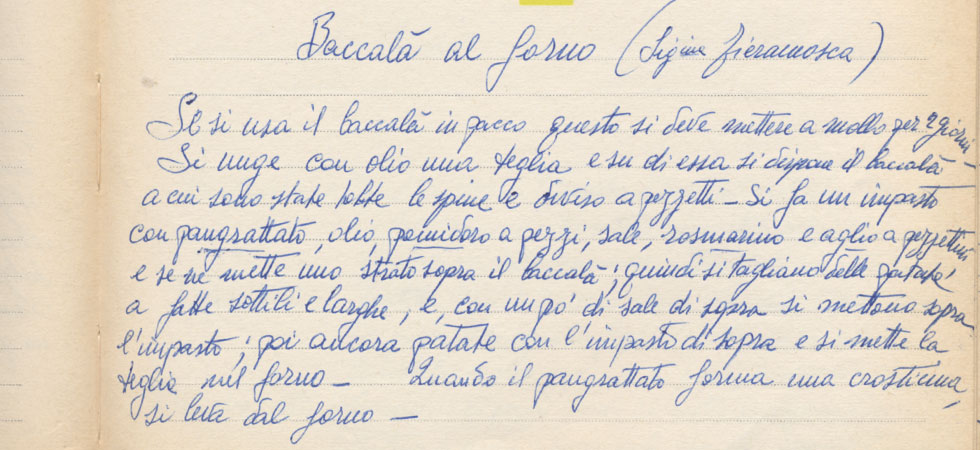 Baccalà al forno (Sig.na Fieramosca)
Se si usa il baccalà in pacco questo si deve mettere a mollo per 2 giorni -
Si unge con olio una teglia e su di essa si dispone il baccalà
a cui sono state tolte le spine e diviso a pezzetti - Si fa un impasto
con pangrattato, olio, pomidoro a pezzi, sale, rosmarino e aglio a pezzettini
e se ne mette uno strato sopra il baccalà; quindi si tagliano delle patate
a fette sottili e larghe, e, con un po' di sale di sopra si mettono sopra
l'impasto; poi ancora patate con l'impasto di sopra e si mette la
teglia nel forno - Quando il pangrattato forma una crosticina,
si leva dal forno -